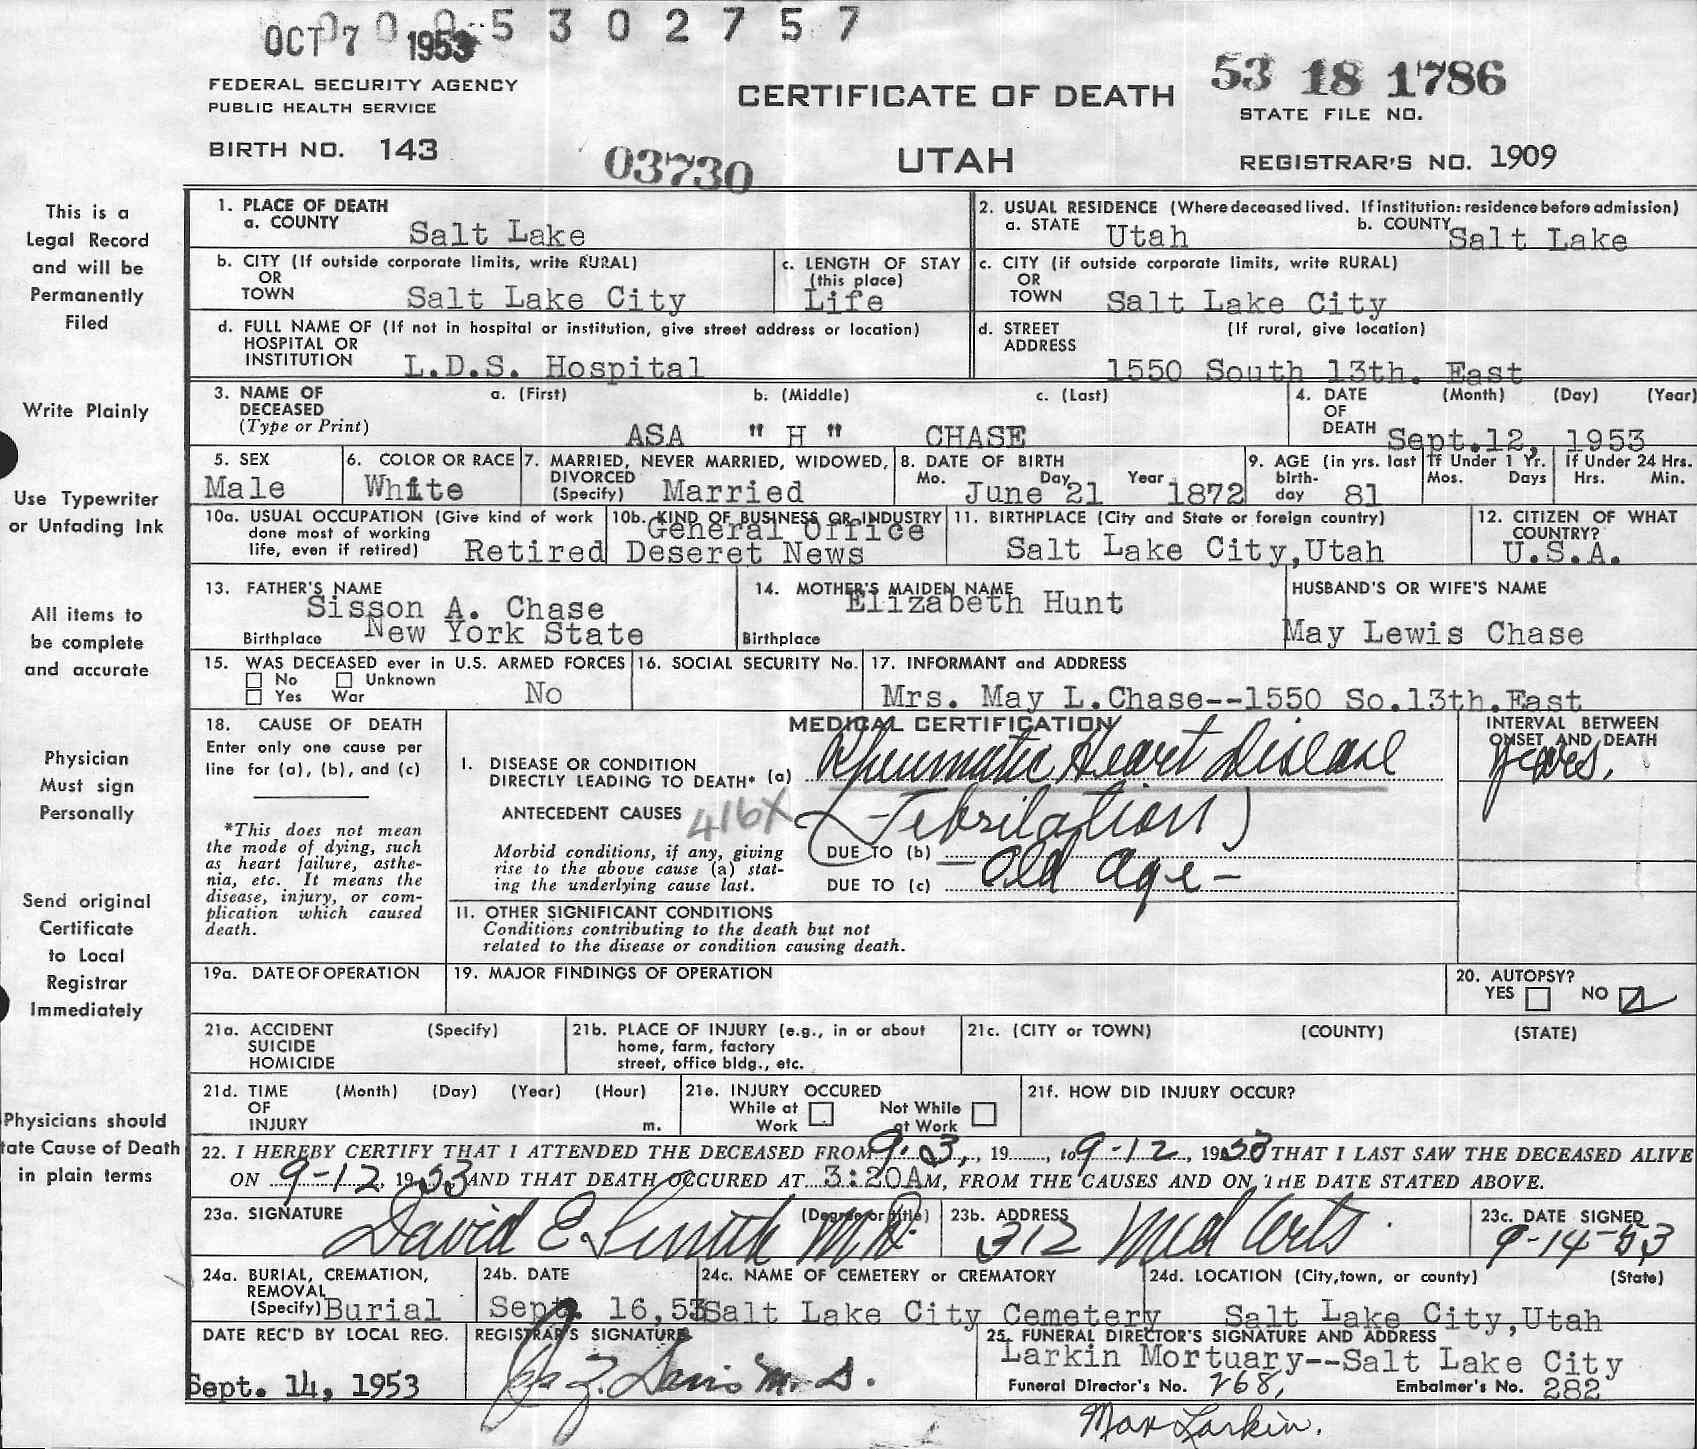 OCT 7 1953 5 3 0 2 7 5 7
FEDERAL SECURITY AGENCY
PUBLIC HEALTH SERVICE
BIRTH NO. 143
03730
CERTIFICATE OF DEATH
UTAH
53 18 1786
STATE FILE NO.
REGISTRAR'S NO. 1909
This is a
Legal Record
and will be
Permanently
Filed
Write Plainly
Use Typewriter
or Unfading Ink
All items to
be complete
and accurate
Physician
Must sign
Personally
Send original
Certificate
to Local
Registrar
Immediately
Physicians should
tate Cause of Death
in plain terms
1. PLACE OF DEATH
a. COUNTY Salt Lake
2. USUAL RESIDENCE (Where deceased lived. If institution: residence before admission)
a. STATE Utah b. COUNTY Salt Lake
b. CITY (If outside corporate limits, write RURAL)
OR
TOWN Salt Lake City
c. LENGTH OF STAY
(this place)
Life
c. CITY (if outside corporate limits, write RURAL)
OR
TOWN Salt Lake City
d. FULL NAME OF (If not in hospital or institution, give street address or location)
HOSPITAL OR
INSTITUTION L.D.S. Hospital
d. STREET (If rural, give location)
ADDRESS
1550 South 13th. East
3. NAME OF a. (First) b. (Middle) c. (Last)
DECEASED
(Type or Print) ASA " H " CHASE
4. DATE (Month) (Day) (Year)
OF
DEATH Sept.12, 1953
5. SEX
Male
6. COLOR OR RACE
White
7. MARRIED, NEVER MARRIED, WIDOWED,
DIVORCED
(Specify) Married
8. DATE OF BIRTH
Mo. Day Year
June 21 1872
9. AGE (in yrs. last
birth-
day 81
If Under 1 Yr.
Mos. Days
If Under 24 Hrs.
Hrs. Min.
10a. USUAL OCCUPATION (Give kind of work
done most of working
life, even if retired) Retired
10b. KIND OF BUSINESS OR INDUSTRY
General Office
Deseret News
11. BIRTHPLACE (City and State or foreign country)
Salt Lake City,Utah
12. CITIZEN OF WHAT
COUNTRY?
U.S.A.
13. FATHER'S NAME
Sisson A. Chase
Birthplace New York State
14. MOTHER'S MAIDEN NAME
Elizabeth Hunt
Birthplace
HUSBAND'S OR WIFE'S NAME
May Lewis Chase
15. WAS DECEASED ever in U.S. ARMED FORCES
No Unknown
Yes War No
16. SOCIAL SECURITY No.
17. INFORMANT and ADDRESS
Mrs. May L.Chase--1550 So.13th.East
18. CAUSE OF DEATH
Enter only one cause per
line for (a), (b), and (c)
*This does not mean
the mode of dying, such
as heart failure, asthe-
nia, etc. It means the
disease, injury, or com-
plication which caused
death.
MEDICAL CERTIFICATION
I. DISEASE OR CONDITION
DIRECTLY LEADING TO DEATH* (a) Rheumatic Heart Disease
ANTECEDENT CAUSES 416X (Febrilation)
Morbid conditions, if any, giving
rise to the above cause (a) stat-
ing the underlying cause last.
DUE TO (b)
DUE TO (c) Old age -
INTERVAL BETWEEN
ONSET AND DEATH
years.
II. OTHER SIGNIFICANT CONDITIONS
Conditions contributing to the death but not
related to the disease or condition causing death.
19a. DATE OF OPERATION
19. MAJOR FINDINGS OF OPERATION
20. AUTOPSY?
YES NO
21a. ACCIDENT (Specify)
SUICIDE
HOMICIDE
21b. PLACE OF INJURY (e.g., in or about
home, farm, factory
street, office bldg., etc.
21c. (CITY or TOWN) (COUNTY) (STATE)
21d. TIME (Month) (Day) (Year) (Hour)
OF
INJURY m.
21e. INJURY OCCURED
While at Not While
Work at Work
21f. HOW DID INJURY OCCUR?
22. I HEREBY CERTIFY THAT I ATTENDED THE DECEASED FROM 9-03, 19......, to 9-12, 1953 THAT I LAST SAW THE DECEASED ALIVE
ON 9-12, 1953 AND THAT DEATH OCCURED AT 3:20AM, FROM THE CAUSES AND ON THE DATE STATED ABOVE.
23a. SIGNATURE (Degree or title)
David E. Smith M.D.
23b. ADDRESS
312 Med Arts
23c. DATE SIGNED
9-14-53
24a. BURIAL, CREMATION,
REMOVAL
(Specify) Burial
24b. DATE
Sept. 16,53
24c. NAME OF CEMETERY or CREMATORY
Salt Lake City Cemetery
24d. LOCATION (City,town, or county) (State)
Salt Lake City,Utah
DATE REC'D BY LOCAL REG.
Sept. 14, 1953
REGISTRAR'S SIGNATURE
Davis M.D.
25. FUNERAL DIRECTOR'S SIGNATURE AND ADDRESS
Larkin Mortuary--Salt Lake City
Funeral Director's No. 268, Embalmer's No. 282
Max Larkin.